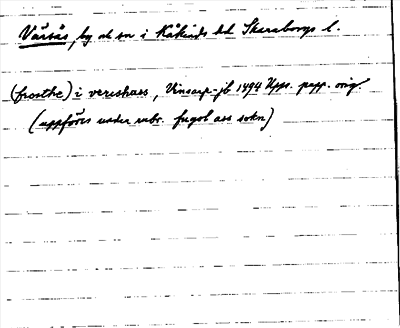 Värsås, by o sn i Kåkinds hd Skaraborgs l.
(frosthe) i vereshass, Vinsarp-jb 1494 Upps. papp. orig.
(uppföres under rubr. fugol ass sokn)